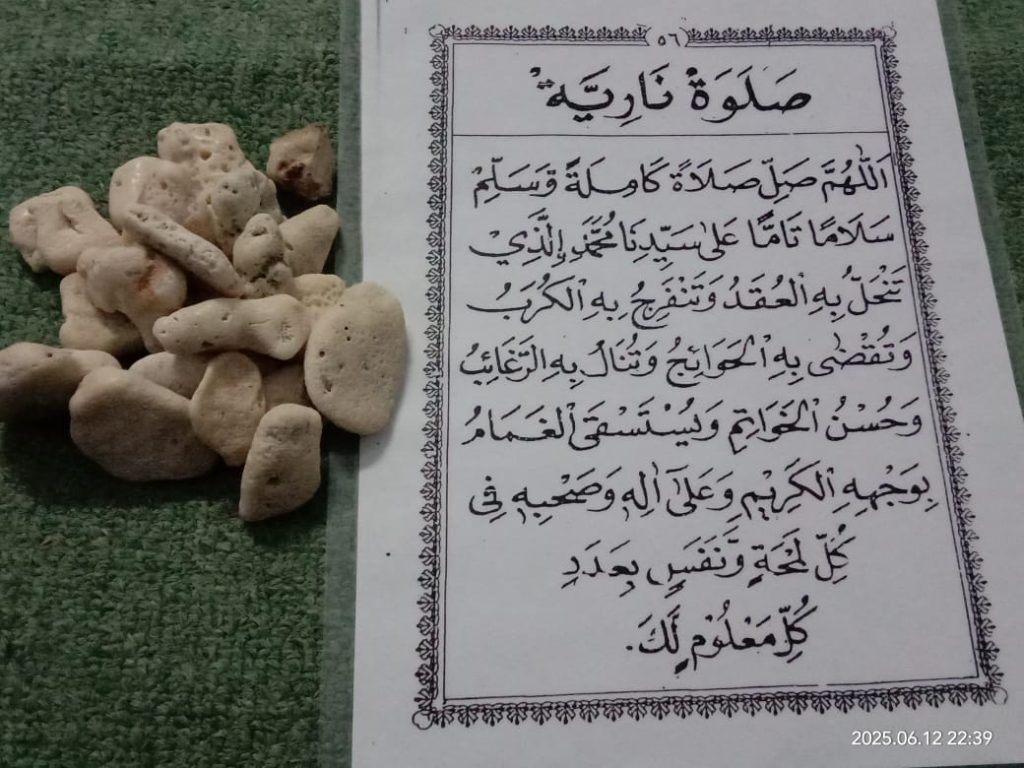 ٥٦
صَلَوَةْ نَارِيَّةْ
اَللّٰهُمَّ صَلِّ صَلَاةً كَامِلَةً وَّسَلِّمْ
سَلَامًا تَامًّا عَلٰى سَيِّدِنَا مُحَمَّدِ ࣙالَّذِيْ
تَنْحَلُّ بِهِ الْعُقَدُ وَتَنْفَرِجُ بِهِ الْكُرَبُ
وَتُقْضٰى بِهِ الْحَوَائِجُ وَتُنَالُ بِهِ الرَّغَائِبُ
وَحُسْنُ الْخَوَاتِمِ وَيُسْتَسْقَى الْغَمَامُ
بِوَجْهِهِ الْكَرِيْمِ وَعَلٰٓى اٰلِهٖ وَصَحْبِهٖ فِى
كُلِّ لَمْحَةٍ وَّنَفَسٍ بِعَدَدِ
كُلِّ مَعْلُوْمٍ لَّكَ.
2025.06.12 22:39